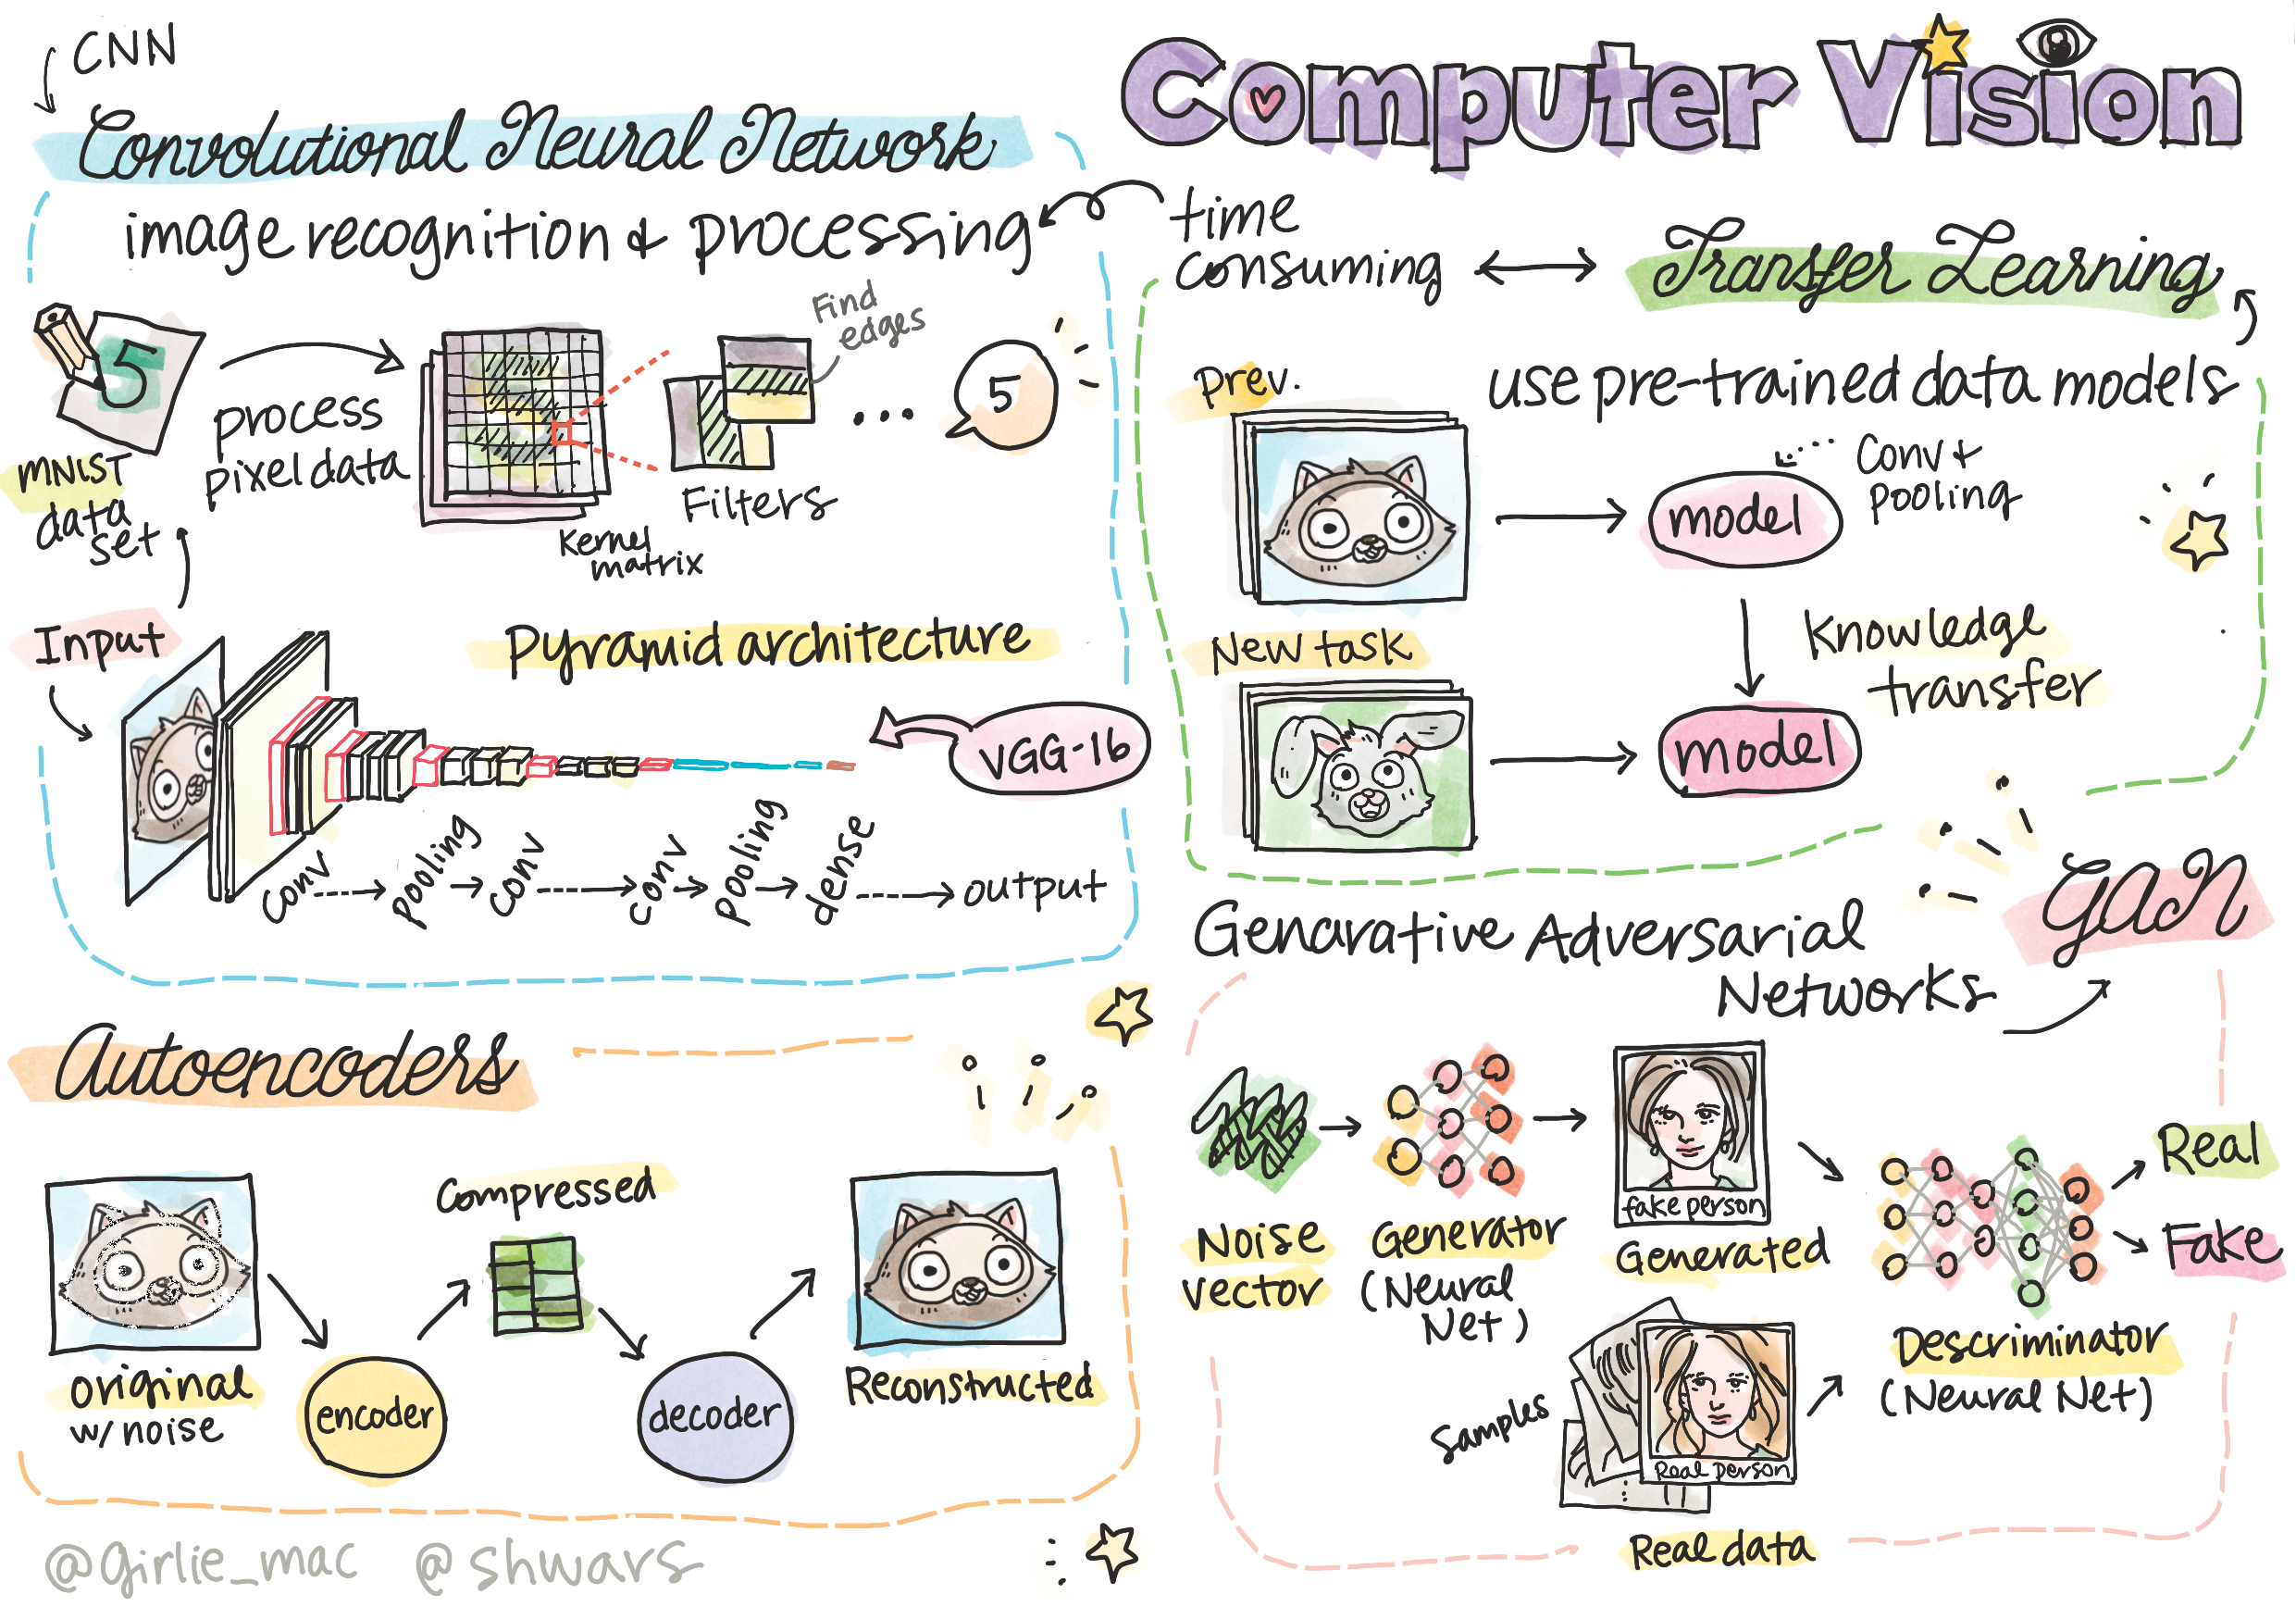 CNN
Convolutional Neural Network
image recognition & processing
5
MNIST
data
set
process
pixel data
Kernel
matrix
Find
edges
Filters
...
5
Input
Pyramid architecture
VGG-16
conv
pooling
conv
conv
pooling
dense
output
Autoencoders
original
w/ noise
encoder
Compressed
decoder
Reconstructed
@girlie_mac @shwars
Computer Vision
time
consuming
Transfer Learning
use pre-trained data models
prev.
model
Conv &
pooling
New task
Knowledge
transfer
model
GAN
Genarative Adversarial
Networks
Noise
vector
Generator
(Neural
Net)
fake person
Generated
Samples
Real person
Real data
Descriminator
(Neural Net)
Real
Fake